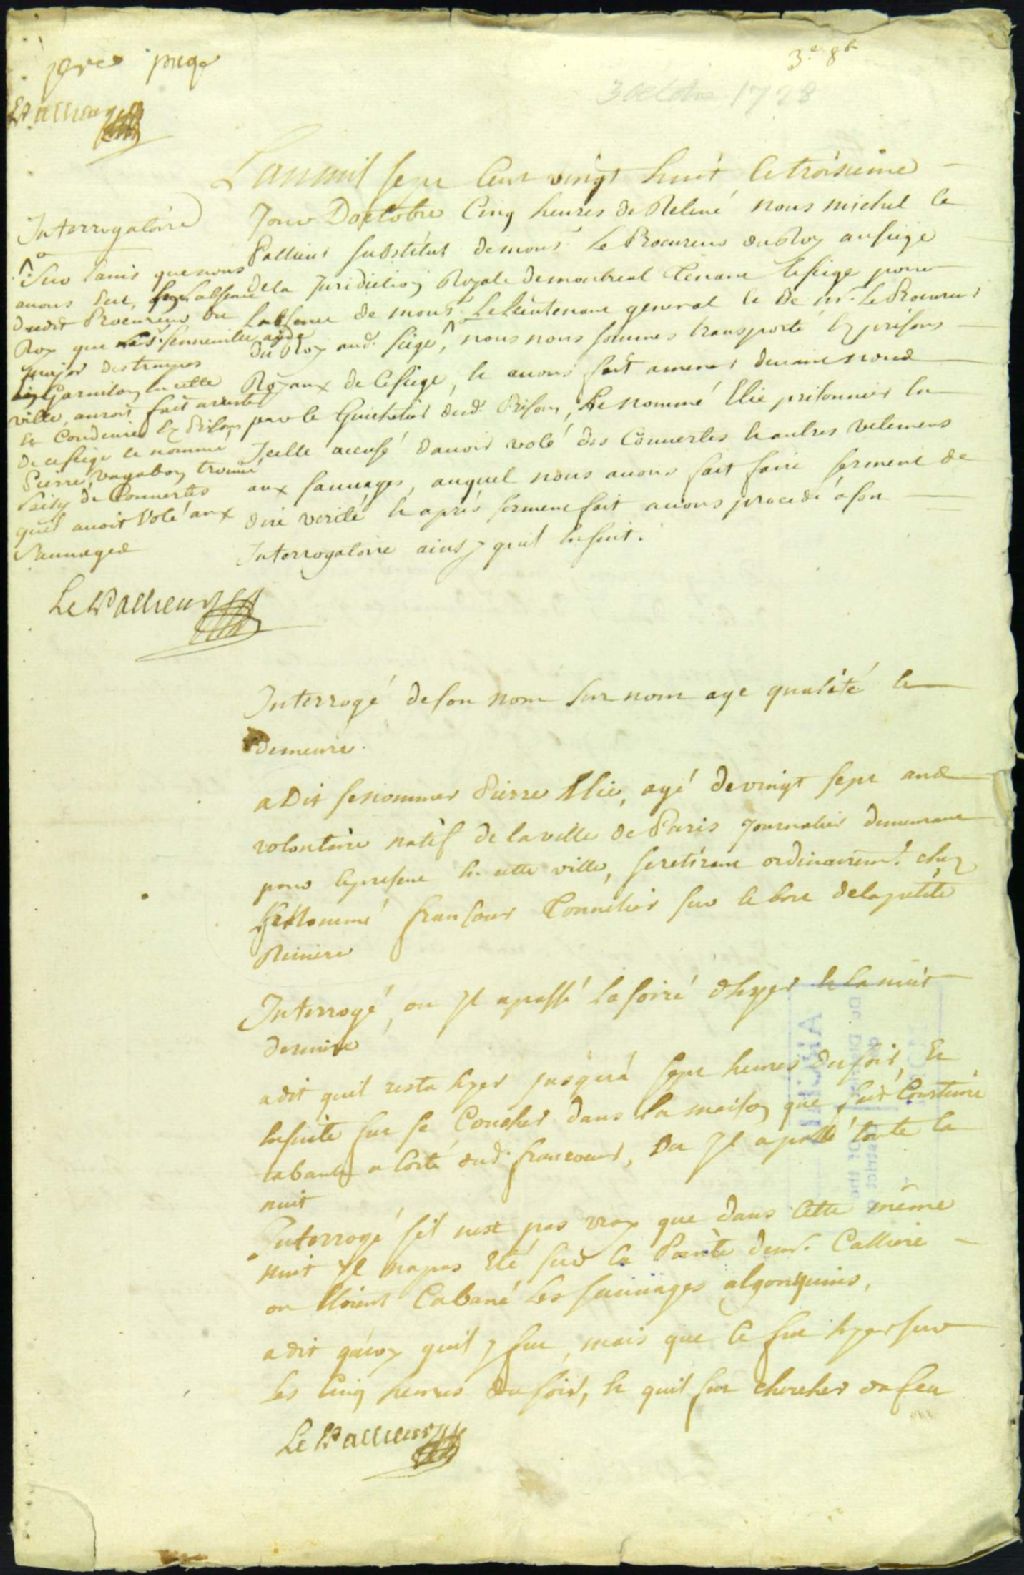 3e 8bre
3 octobre 1728
premiere page
Le Pallieur
L'an mil sept Cent vingt huit le troisieme
Jour D'octobre Cinq heures de Relevé nous michel le
Pallieur substitut de mons.r le Procureur du Roy au siege
de la Juridiction Royale de montreal tenant le siege pour
Labsence de mons.r Le Lieutenant general
du Roy aud. siege, ^ nous nous sommes transporté Ez prisons
Royaux de ce siege, et avons fait amener devant nous
par le Guichetier desd. Prisons, Le nommé Elie prisonnier en
Icelle accusé d'avoir volé des Couvertes et autres vetemens
aux sauvages, auquel nous avons fait faire serment de
dire verité et après serment fait avons procedé à son
Interrogatoire ainsy quil ensuit.
Interrogatoire
^ sur lavis que nous
avons Eut,
dudit Procureur du
Roy que
major des troupes
En Garnison En cette
ville, auroit fait arreter
et Conduire Ez Prisons
de ce siege le nommé
Pierre, vagabon, trouvé
saisy de Couvertes
quil avoit Volé aux
Sauvages
Le Pallieur
Interrogé de son nom surnom age qualité et
demeure.
a Dit se nommer Pierre Elie, agé de vingt sept ans
volontaire natif de la ville de Paris Journalier demeurant
pour le present En cette ville, se retirant ordinairem.t chez
Le Nommé francoeur Tonnelier sur le bord de la petite
Riviere
Interrogé, ou Il a passé la soiré d'hyer et la nuit
derniere
a dit quil resta hyer jusqu'à sept heures du soir, Et
Ensuite fut se Coucher dans la maison que fait Construire
a Coté dud. francoeur, Ou Il a passé toute la
nuit
Interrogé s'il nest pas vray que dans cette même
nuit Il n'a pas Eté sur la Pointe de mr. Calliere
ou Etoient Cabané Les sauvages algonquins,
a dit qu'ouy quil y fut, mais que ce fut hyer sur
Les Cinq heures du soir, et quil fut chercher du feu
Le Pallieur